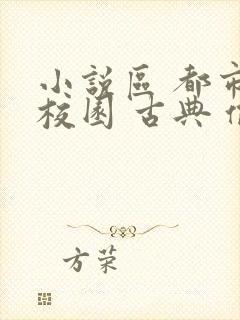 小說區 都市
校園 古典
方荣